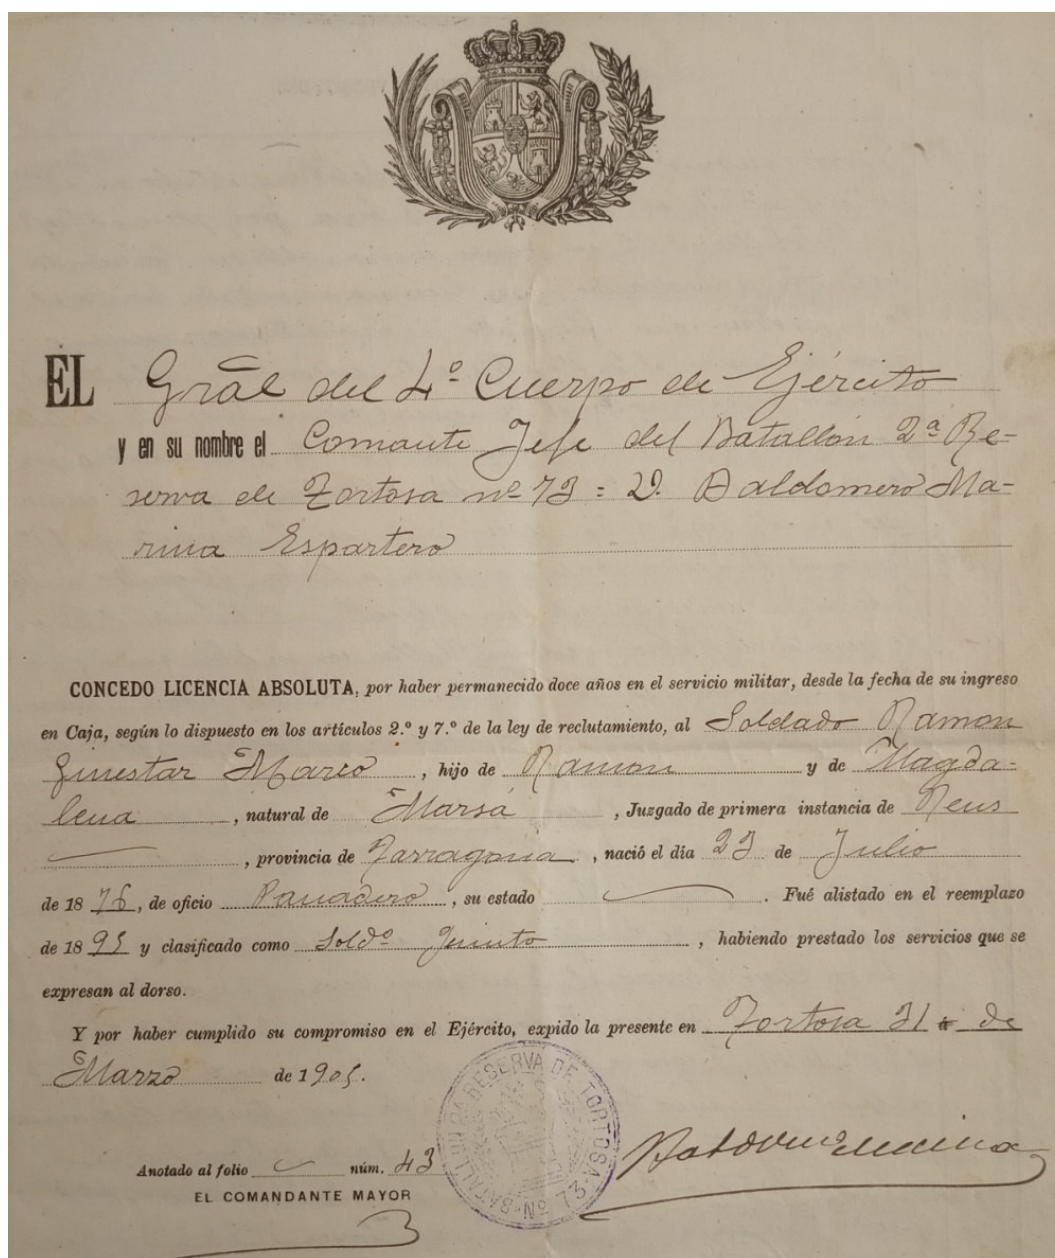 EL Grāl del 4º Cuerpo de Ejército
y en su nombre el Comante Jefe del Batallón 2ª Re-
serva de Tortosa nº 73 = D. Baldomero Ma-
rina Espartero
CONCEDO LICENCIA ABSOLUTA, por haber permanecido doce años en el servicio militar, desde la fecha de su ingreso
en Caja, según lo dispuesto en los artículos 2.º y 7.º de la ley de reclutamiento, al Soldado Ramon
Ginestar Marco, hijo de Ramon y de Magda-
lena, natural de Marsá, Juzgado de primera instancia de Reus
, provincia de Tarragona, nació el día 23 de Julio
de 1876, de oficio Panadero, su estado . Fué alistado en el reemplazo
de 1895 y clasificado como Soldº Quinto, habiendo prestado los servicios que se
expresan al dorso.
Y por haber cumplido su compromiso en el Ejército, expido la presente en Tortosa 31 de
Marzo de 1905.
BATALLON 2ª RESERVA DE TORTOSA Nº 73
Anotado al folio núm. 43
EL COMANDANTE MAYOR